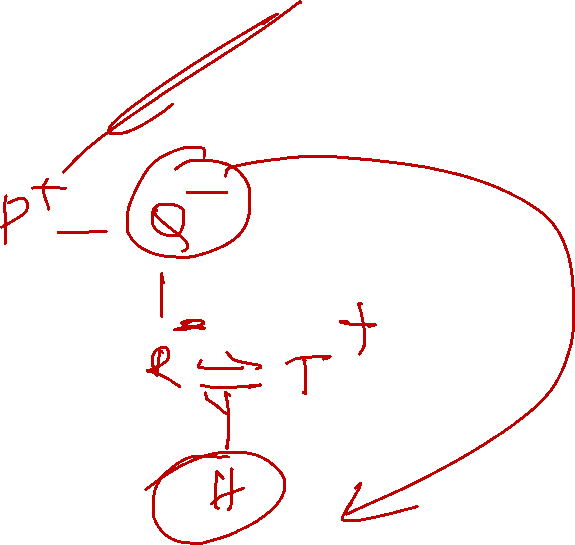 P+ — Q-
R- = T+
H